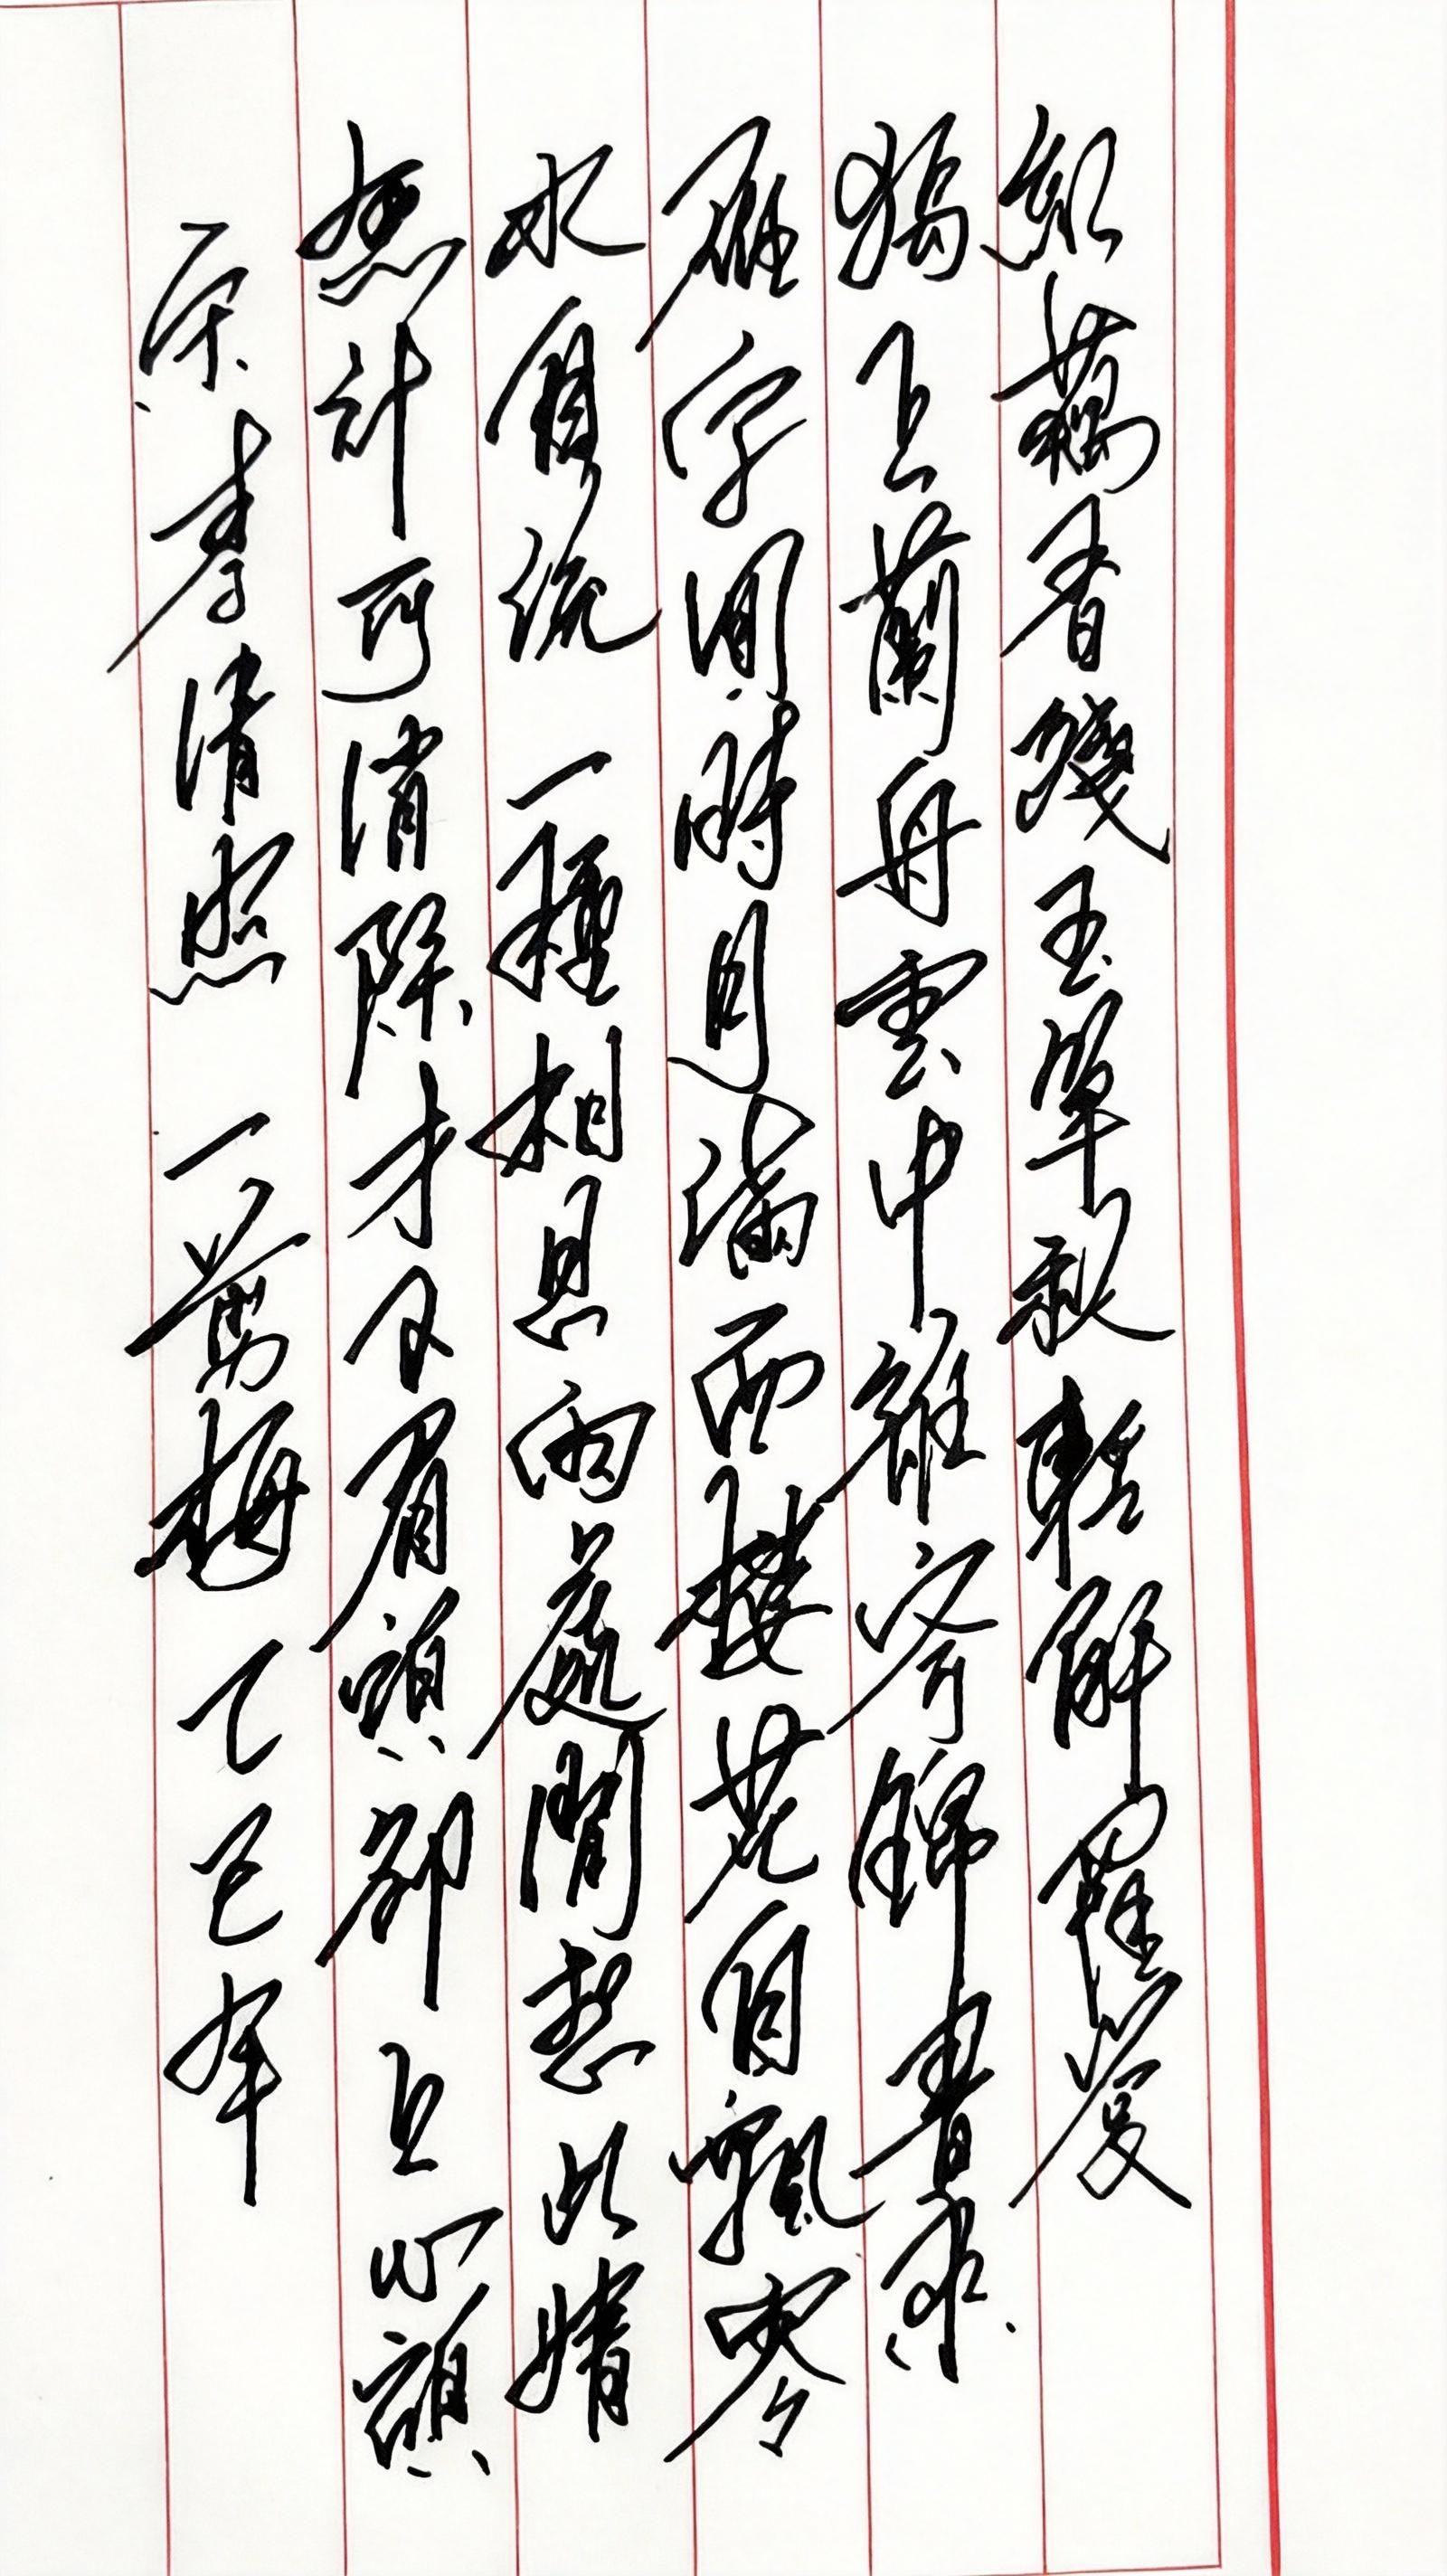 紅藕香殘玉簟秋輕解羅裳
獨上蘭舟雲中誰寄錦書來
雁字回時月滿西樓花自飄零
水自流一種相思兩處閒愁此情
無計可消除才下眉頭卻上心頭
宋李清照一剪梅乙巳年